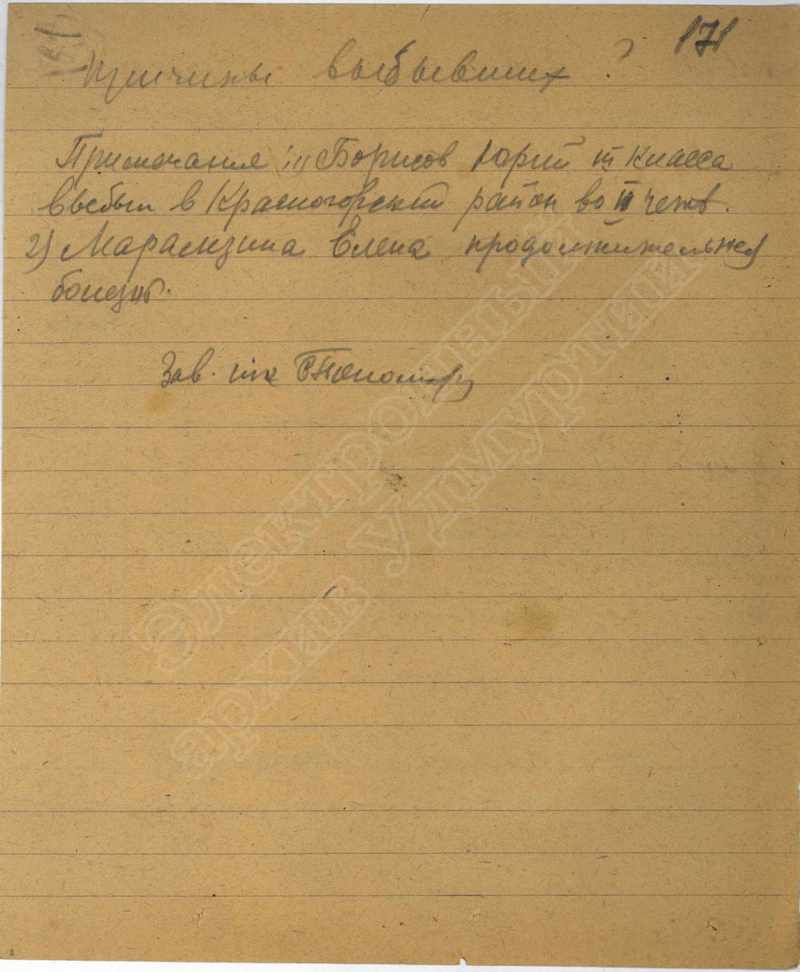 171
Причины выбывших ?
Примечания 1) Борисов Юрий III класса
выбыл в Красногорский район во II четв.
2) Марамзина Елена продолжительная
болезнь.
Зав. шк
Электронный
архив Удмуртии